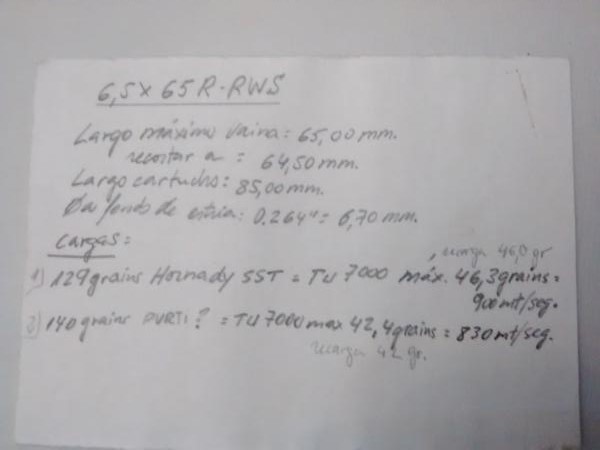 6,5 x 65 R - RWS
Largo máximo vaina = 65,00 mm.
recortar a = 64,50 mm.
Largo cartucho: 85,00 mm.
Ø a fondo de estria: 0.264" = 6,70 mm.
Cargas:
, 46,0 gr
1) 129 grains Hornady SST = Tu 7000 máx. 46,3 grains =
900 mt/seg.
2) 140 grains ? = Tu 7000 max 42,4 grains = 830 mt/seg.
42 gr.